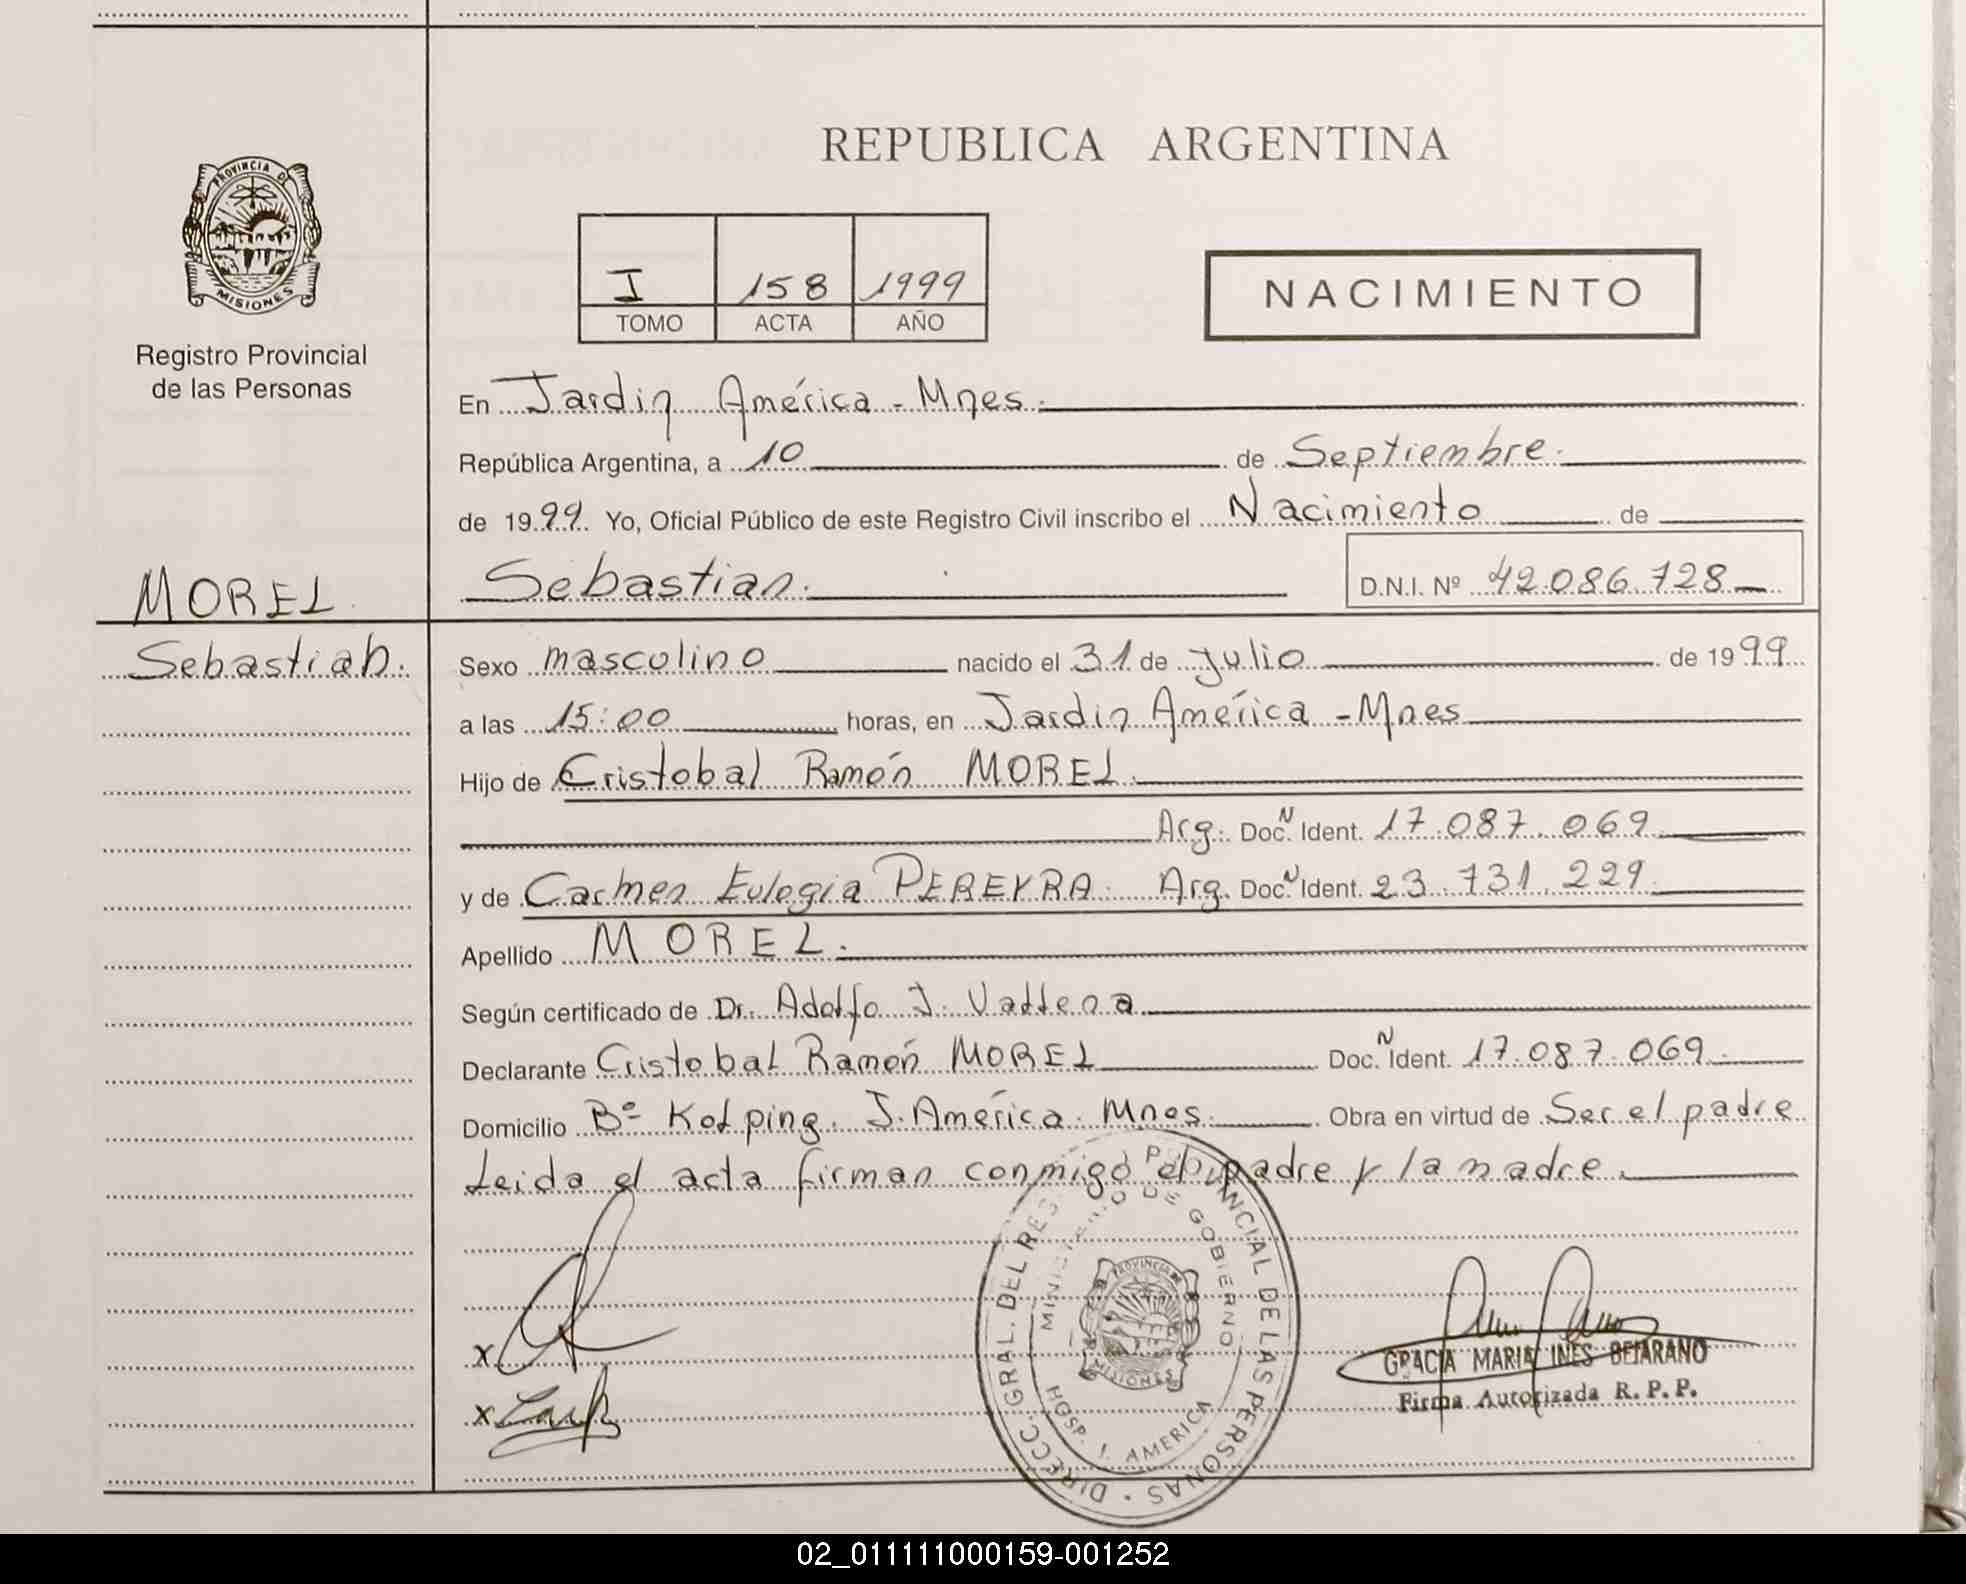 REPUBLICA ARGENTINA
PROVINCIA DE
MISIONES
Registro Provincial
de las Personas
I 158 1999
TOMO ACTA AÑO
NACIMIENTO
En Jardin América - Mnes.
República Argentina, a 10 de Septiembre.
de 1999. Yo, Oficial Público de este Registro Civil inscribo el Nacimiento de
Sebastian. D.N.I. Nº 42.086.728
MOREL
Sebastian.
Sexo masculino nacido el 31 de Julio de 1999
a las 15:00 horas, en Jardin América - Mnes
Hijo de Cristobal Ramón MOREL.
Arg. Doc. N Ident. 17.087.069
y de Carmen Eulogia PEREYRA. Arg. Doc. N Ident. 23.731.229
Apellido MOREL.
Según certificado de Dr. Adolfo J.
Declarante Cristobal Ramón MOREL Doc. N Ident. 17.087.069
Domicilio Bº Kolping. J. América. Mnes. Obra en virtud de Ser el padre
Leida el acta firman conmigo el padre y la madre.
DIRECC. GRAL. DEL REG. PROVINCIAL DE LAS PERSONAS
MINISTERIO DE GOBIERNO
PROVINCIA DE
MISIONES
HOSP. J. AMERICA
x
x
GRACIA MARIA INES BEJARANO
Firma Autorizada R. P. P.
02_011111000159-001252